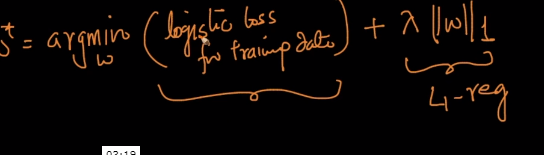 * = argmin ( logistic loss + λ ||w||₁
w for training data )
L1-reg
03:19